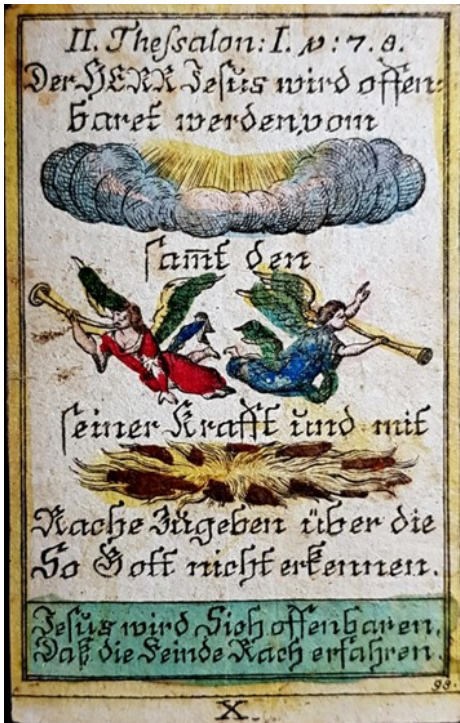 II. Thessalon: I. v: 7. 8.
Der HERR Jesus wird offen:
baret werden, vom
sam̅t den
seiner Krafft und mit
Rache Zügeben über die
So Gott nicht erkennen.
Jesus wird Sich offenbaren,
Daß die Feinde Rach erfahren.
98.
X.